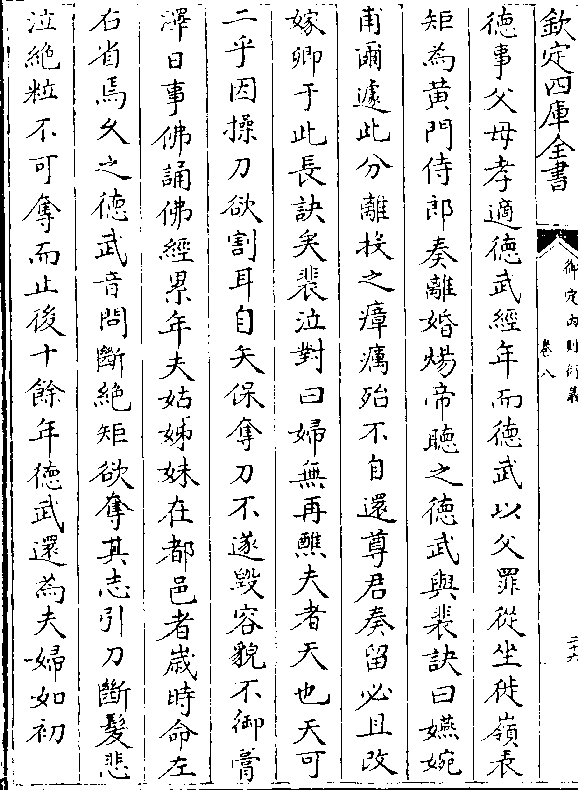 欽定四庫全書
御定內則衍義
卷八
二十六
德事父母孝適德武經年而德武以父罪從坐徙嶺表
矩為黃門侍郎奏離婚煬帝聽之德武與裴訣曰嬿婉
甫爾遽此分離投之瘴癘殆不自還尊君奏留必且改
嫁卿于此長訣矣裴泣對曰婦無再醮夫者天也天可
二乎因操刀欲割耳自矢保奪刀不遂毀容貌不御膏
澤日事佛誦佛經累年夫姑姊妹在都邑者嵗時命左
右省焉久之德武音問斷絶矩欲奪其志引刀斷髮悲
泣絶粒不可奪而止後十餘年德武還為夫婦如初